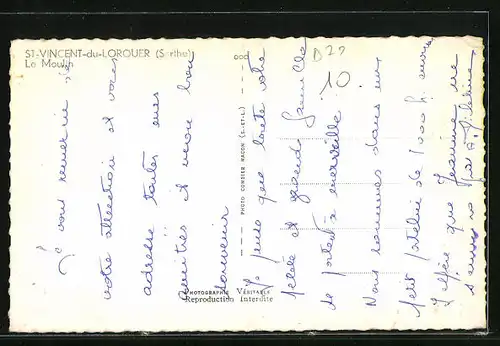 ST-VINCENT-du-LOROUER (Sarthe)
Le Moulin
D 22
10
Je vous remercie de
votre attention et vous
adresse toutes mes
amitiés et mon bon
souvenir
Je pense que toute votre
petite et grande famille
se porte à merveille
Nous sommes dans un
petit patelin de 1000 h.
J'espère que Jeannine ne
PHOTO COMBIER MACON (S.-ET-L.)
PHOTOGRAPHIE VÉRITABLE
Reproduction Interdite